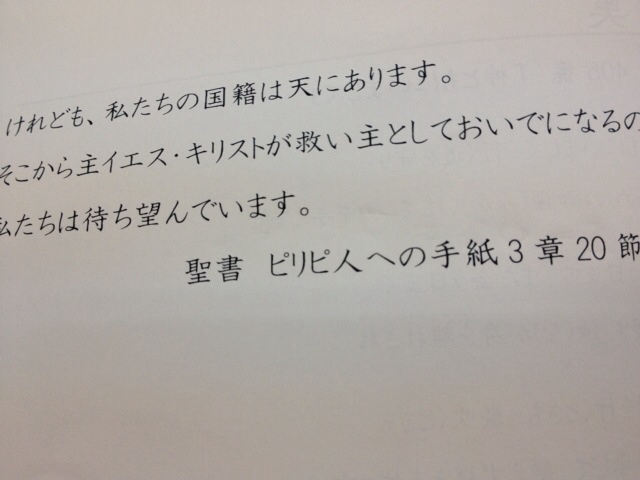 けれども、私たちの国籍は天にあります。
そこから主イエス・キリストが救い主としておいでになるの
私たちは待ち望んでいます。
聖書 ピリピ人への手紙3章20節